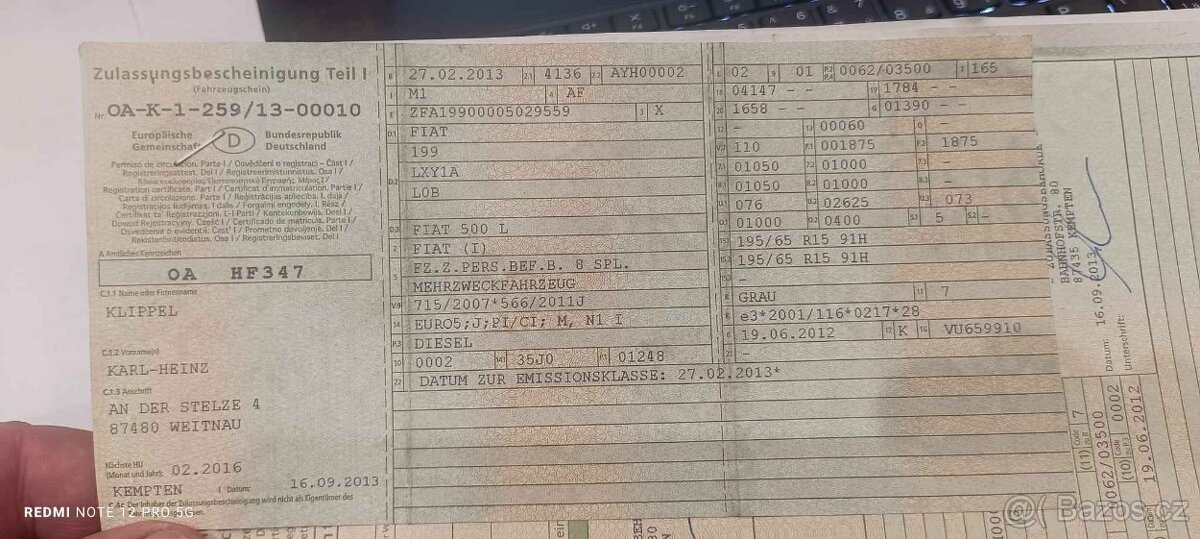 Zulassungsbescheinigung Teil I
(Fahrzeugschein)
Nr. OA-K-1-259/13-00010
Europäische Gemeinschaft
D
Bundesrepublik Deutschland
Permiso de circulación. Parte I / Osvědčení o registraci - Část I /
Registreringsattest. Del I / Registreerimistunnistus. Osa I /
Άδεια κυκλοφορίας
Registration certificate. Part I / Certificat d'immatriculation. Partie I /
Carta di circolazione. Parte I / Reģistrācijas apliecība. I. daļa /
Registracijos liudijimas. I dalis / Forgalmi engedély. I. Rész /
Ċertifikat ta' Reġistrazzjoni. L-I Parti / Kentekenbewijs. Deel I /
Dowód Rejestracyjny. Część I / Certificado de matrícula. Parte I /
Osvedčenie o evidencii. Časť I / Prometno dovoljenje. Del I /
Rekisteröintitodistus. Osa I / Registreringsbeviset. Del I
A Amtliches Kennzeichen
OA HF347
C.1.1 Name oder Firmenname
KLIPPEL
C.1.2 Vorname(n)
KARL-HEINZ
C.1.3 Anschrift
AN DER STELZE 4
87480 WEITNAU
Nächste HU
(Monat und Jahr): 02.2016
KEMPTEN Datum: 16.09.2013
C.4c Der Inhaber der Zulassungsbescheinigung wird nicht als Eigentümer des
B 27.02.2013 2.1 4136 2.2 AYH00002
J M1 4 AF
E ZFA19900005029559 3 X
D.1 FIAT
199
D.2 LXY1A
L0B
D.3 FIAT 500 L
2 FIAT (I)
5 FZ.Z.PERS.BEF.B. 8 SPL.
MEHRZWECKFAHRZEUG
V.9 715/2007*566/2011J
14 EURO5;J;PI/CI; M, N1 I
P.3 DIESEL
10 0002 14.1 35J0 P.1 01248
22 DATUM ZUR EMISSIONSKLASSE: 27.02.2013*
L 02 9 01 P.2 P.4 0062/03500 T 165
18 04147 - - 19 1784 - -
20 1658 - - G 01390 - -
12 - 13 00060 Q -
V.7 110 F.1 001875 F.2 1875
7.1 01050 7.2 01000 7.3 -
8.1 01050 8.2 01000 8.3 -
U.1 076 U.2 02625 U.3 073
O.1 01000 O.2 0400 S.1 5 S.2 -
15.1 195/65 R15 91H
15.2 195/65 R15 91H
15.3 -
R GRAU 11 7
K e3*2001/116*0217*28
6 19.06.2012 17 K 16 VU659910
21 -
ZULASSUNGSBEHÖRDE
BAHNHOFSTR. 80
87435 KEMPTEN
Datum: 16.09.2013
Unterschrift:
(11) Code zu R 7
0062/03500
(10) Code zu P.3 0002
19.06.2012
REDMI NOTE 12 PRO 5G
Bazos.cz